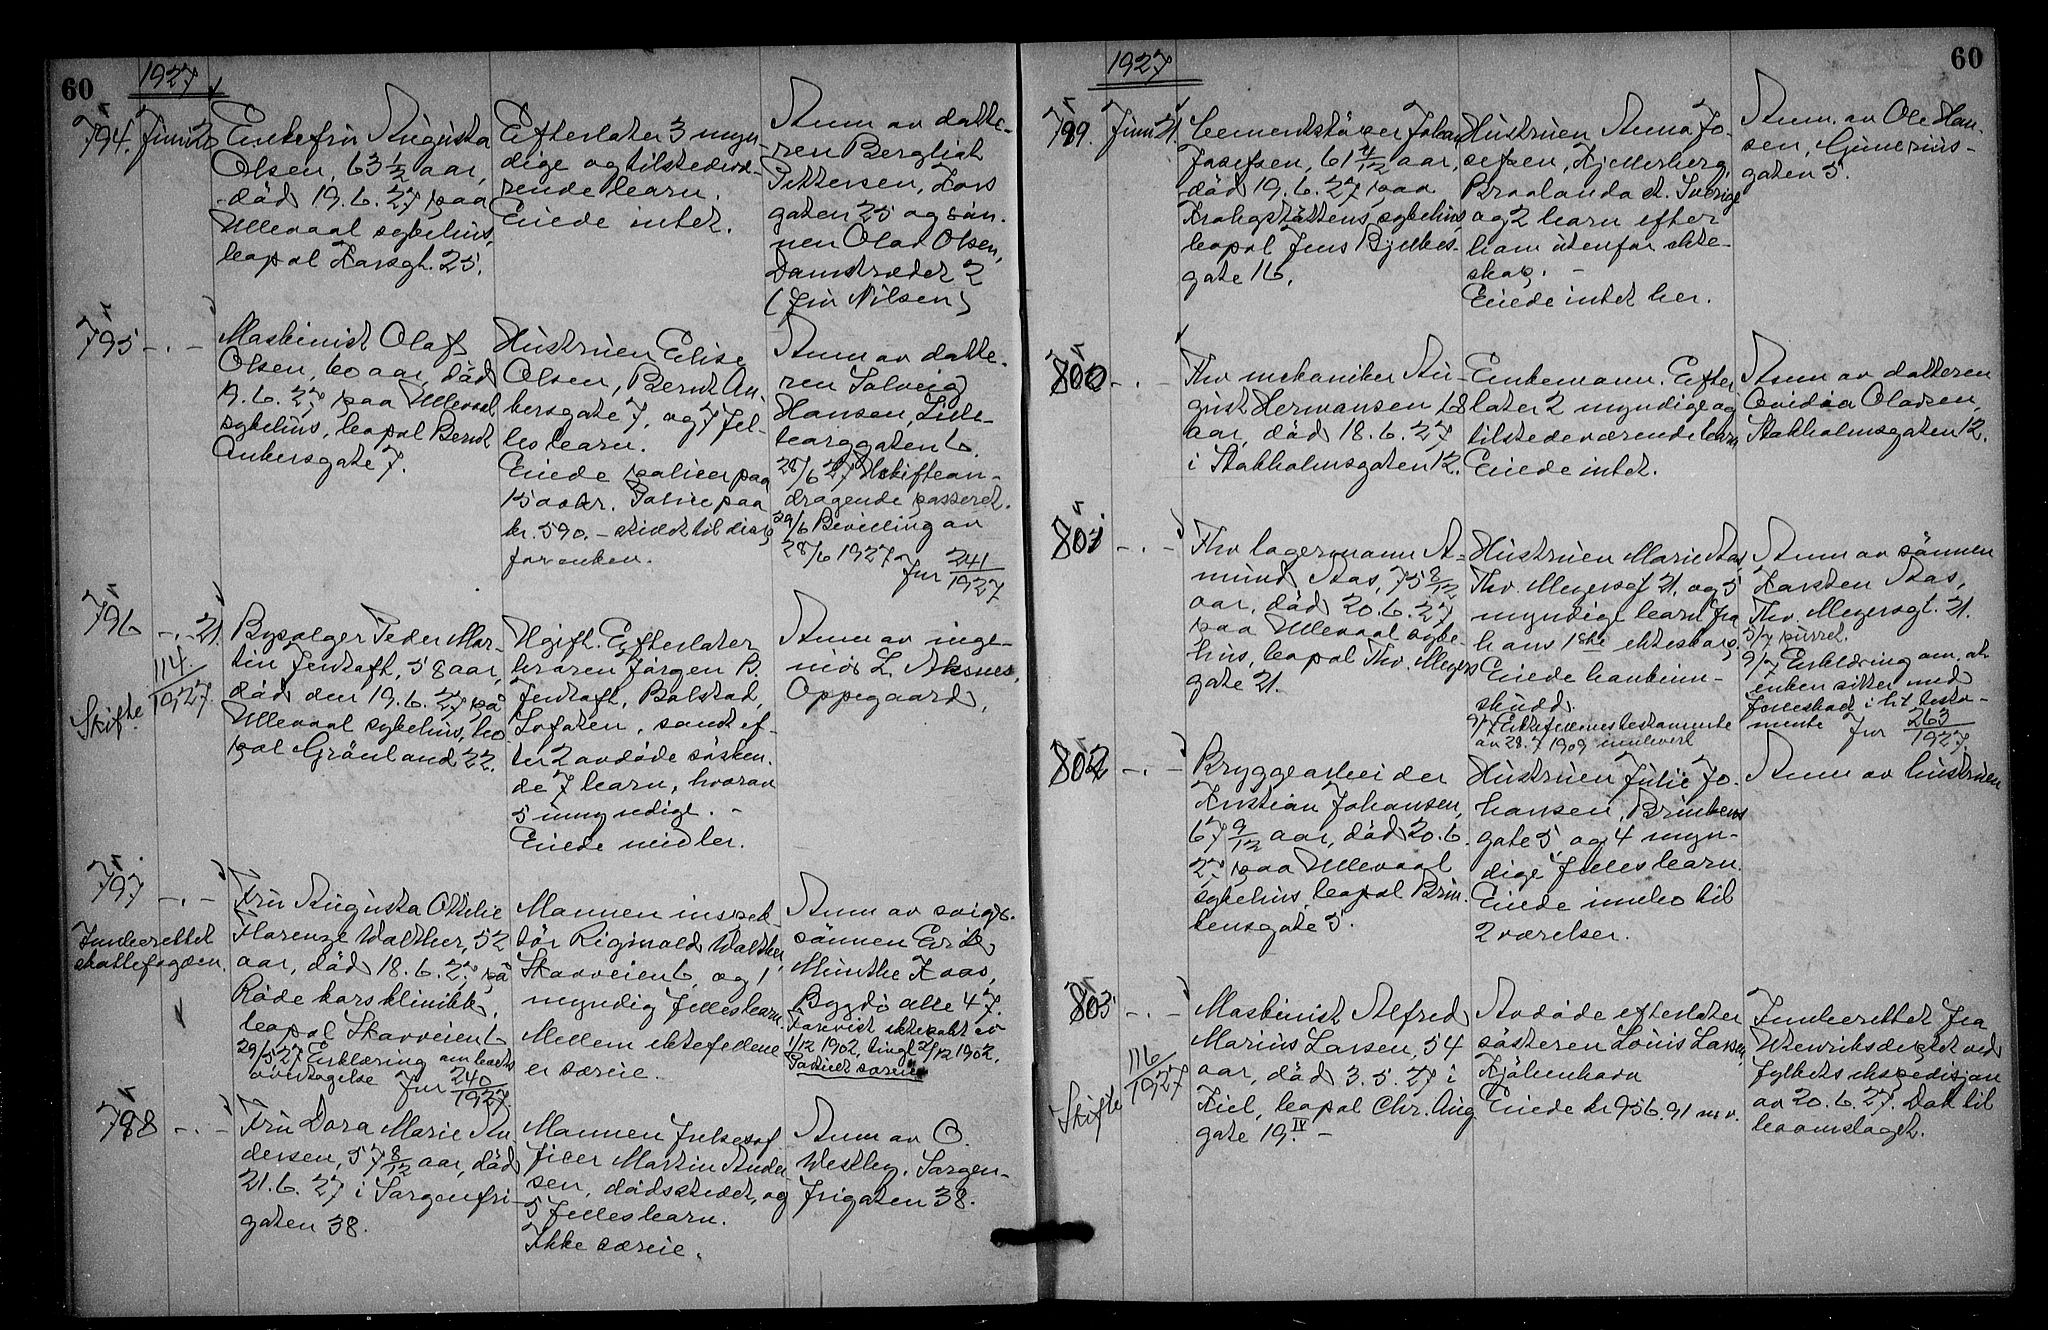 60
1927
794. Juni 20
Enkefru Augusta
Olsen, 63 1/2 aar,
död 19.6.27 paa
Ullevaal sykehus,
bopal Korsgt. 25.
Efterlater 3 myn-
dige og tilstedevæ-
rende barn.
Eiede intet.
Anm av datte-
ren Bergliot
Pettersen, Kors
gaten 25 og søn-
nen Olav Olsen,
Damstrædet 2
(fru Nilsen)
795 -.-
Maskinist Olaf
Olsen, 60 aar, död
19.6.27 paa Ullevaal
sykehus, bopal Bernt
Ankersgate 7.
Hustruen Elise
Olsen, Bernt An-
kersgate 7, og 7 fel-
les barn.
Eiede police paa
1500 kr. Police paa
kr. 590.-
for enken.
Anm av datte-
ren Solveig
Hansen, Liste-
28/6 27 Uskiftean-
dragende passeret.
29/6 Bevilling av
28/6 1927 Jnr 241/1927
796 -.- 21.
114./1927.
Skifte.
Bysælger Peder Mar-
tin Jentoft, 58 aar,
död den 19.6.27 på
Ullevaal sykehus, bo-
pal Grönland 22.
Ugift. Efterlater
broren Jörgen B.
Jentoft, Balstad,
Lofoten, samt ef-
ter 2 avdöde sösken-
de 7 barn, hvorav
5 umyndige. -
Eiede midler.
Anm av inge-
niör L. Aksnes,
Oppegaard.
797 -.-
Innberettet
skattefogden.
Fru Augusta Ottilie
Florenze Walther, 52
aar, död 18.6.27 på
Röde kors klinikk,
bopal Skovveien 6
29/ 27 Erklæring om boets
overtagelse Jnr 240/1927.
Mannen inspek-
tör Riginald Walther,
Skovveien 6 og 1
myndig fellesbarn.
Mellem ektefellene
er særeie.
Anm av svigs-
sönnen Erik
Munthe Kaas,
Bygdö alle 47.
Forevist ektepakt av
1/12 1902, tingl 2/12 1902.
798 -.-
Fru Dora Marie An
dersen, 57 8/12 aar, död
21.6.27 i Sorgenfri-
gaten 38.
Mannen
ficer Martin Ander
sen, dödsstedet, og
5 felles barn.
Ikke særeie.
Anm av O.
Westbg. Sorgen-
frigaten 38.
60
1927
799. Juni 21.
Cementstöper Johan
Josefsen, 61 aar,
död 19.6.27 paa
Krohgstöttens sykehus,
bopal Jens Bjelkes-
gate 16.
Hustruen Anna Jo-
sefsen, Kjellerberg,
Braalanda st. Sverige
og 2 barn efter
ham utenfor ekte-
skap. -
Eiede intet her.
Anm. av Ole Han-
sen, Gunerius-
gaten 5.
800 -.-
Fhv mekaniker Au-
gust Hermansen 68
aar, död 18.6.27
i Stokholmsgaten 12.
Enkemann. Efter
later 2 myndige og
tilstedeværende barn
Eiede intet.
Anm av datteren
Ovidia Olavsen,
Stokholmsgaten 12.
801 -.-
Fhv lagermann A-
mund Aas, 75 8/12
aar, död 20.6.27
paa Ullevaal syke-
hus, bopal Thv. Meyers
gate 21.
Hustruen Marie Aas,
Thv. Meyersgt 21. og 5
myndige barn fra
hans 1ste ekteskap.
Eiede bankinn-
skudd.
9/7 Ektefellenes testamente
av 28.7 1909 innlevert
Anm av sönnen
Karsten Aas,
Thv. Meyersgt. 21.
5/7 purret.
9/7 Erklæring om, at
enken sitter med
fellesboet i h.t. testa-
mente Jnr 263/1927.
802 -.-
Bryggearbeider
Kristian Johansen,
67 9/12 aar, död 20.6.
27 paa Ullevaal
sykehus, bopal Brin-
kensgate 5.
Hustruen Julie Jo-
hansen, Brinkens
gate 5, og 4 myn-
dige felles barn.
Eiede innbo til
2 værelser.
Anm av hustruen
803. -.-
116/1927
Skifte
Maskinist Alfred
Marius Larsen, 54
aar, död 3.5.27 i
Kiel, bopal Chr. Aug
gate 19.IV -
Avdöde efterlater
sösteren Louis Larsen,
Kjöbenhavn
Eiede kr 956.91 m.v.
Innberettet fra
Utenriksdeptet ved
fylkets ekspedisjon
av 20.6.27. Dok til
boomslaget.